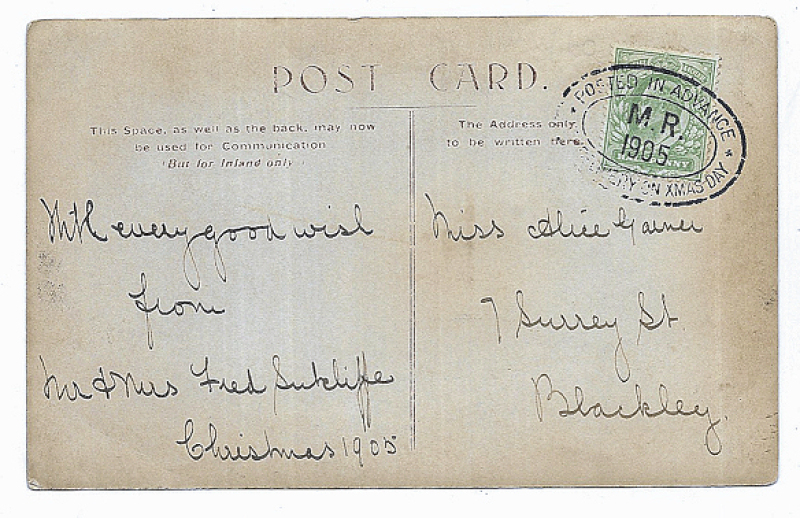 POST CARD.
This Space, as well as the back, may now
be used for Communication
(But for Inland only.)
The Address only
to be written here.
POSTED IN ADVANCE
M.R.
1905
DELIVERY ON XMAS DAY
With every good wish
from
Mr & Mrs Fred Sutcliffe
Christmas 1905
Miss Alice Garner
7 Surrey St.
Blackley.